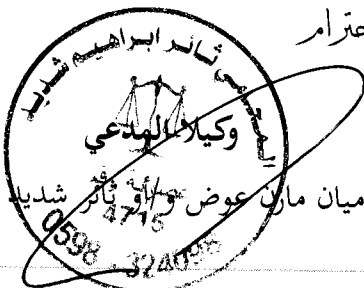 عترام
المحامي ثائر ابراهيم شديد
وكيلا المدعي
ميان مازن عوض و/أو ثائر شديد
4715
0598